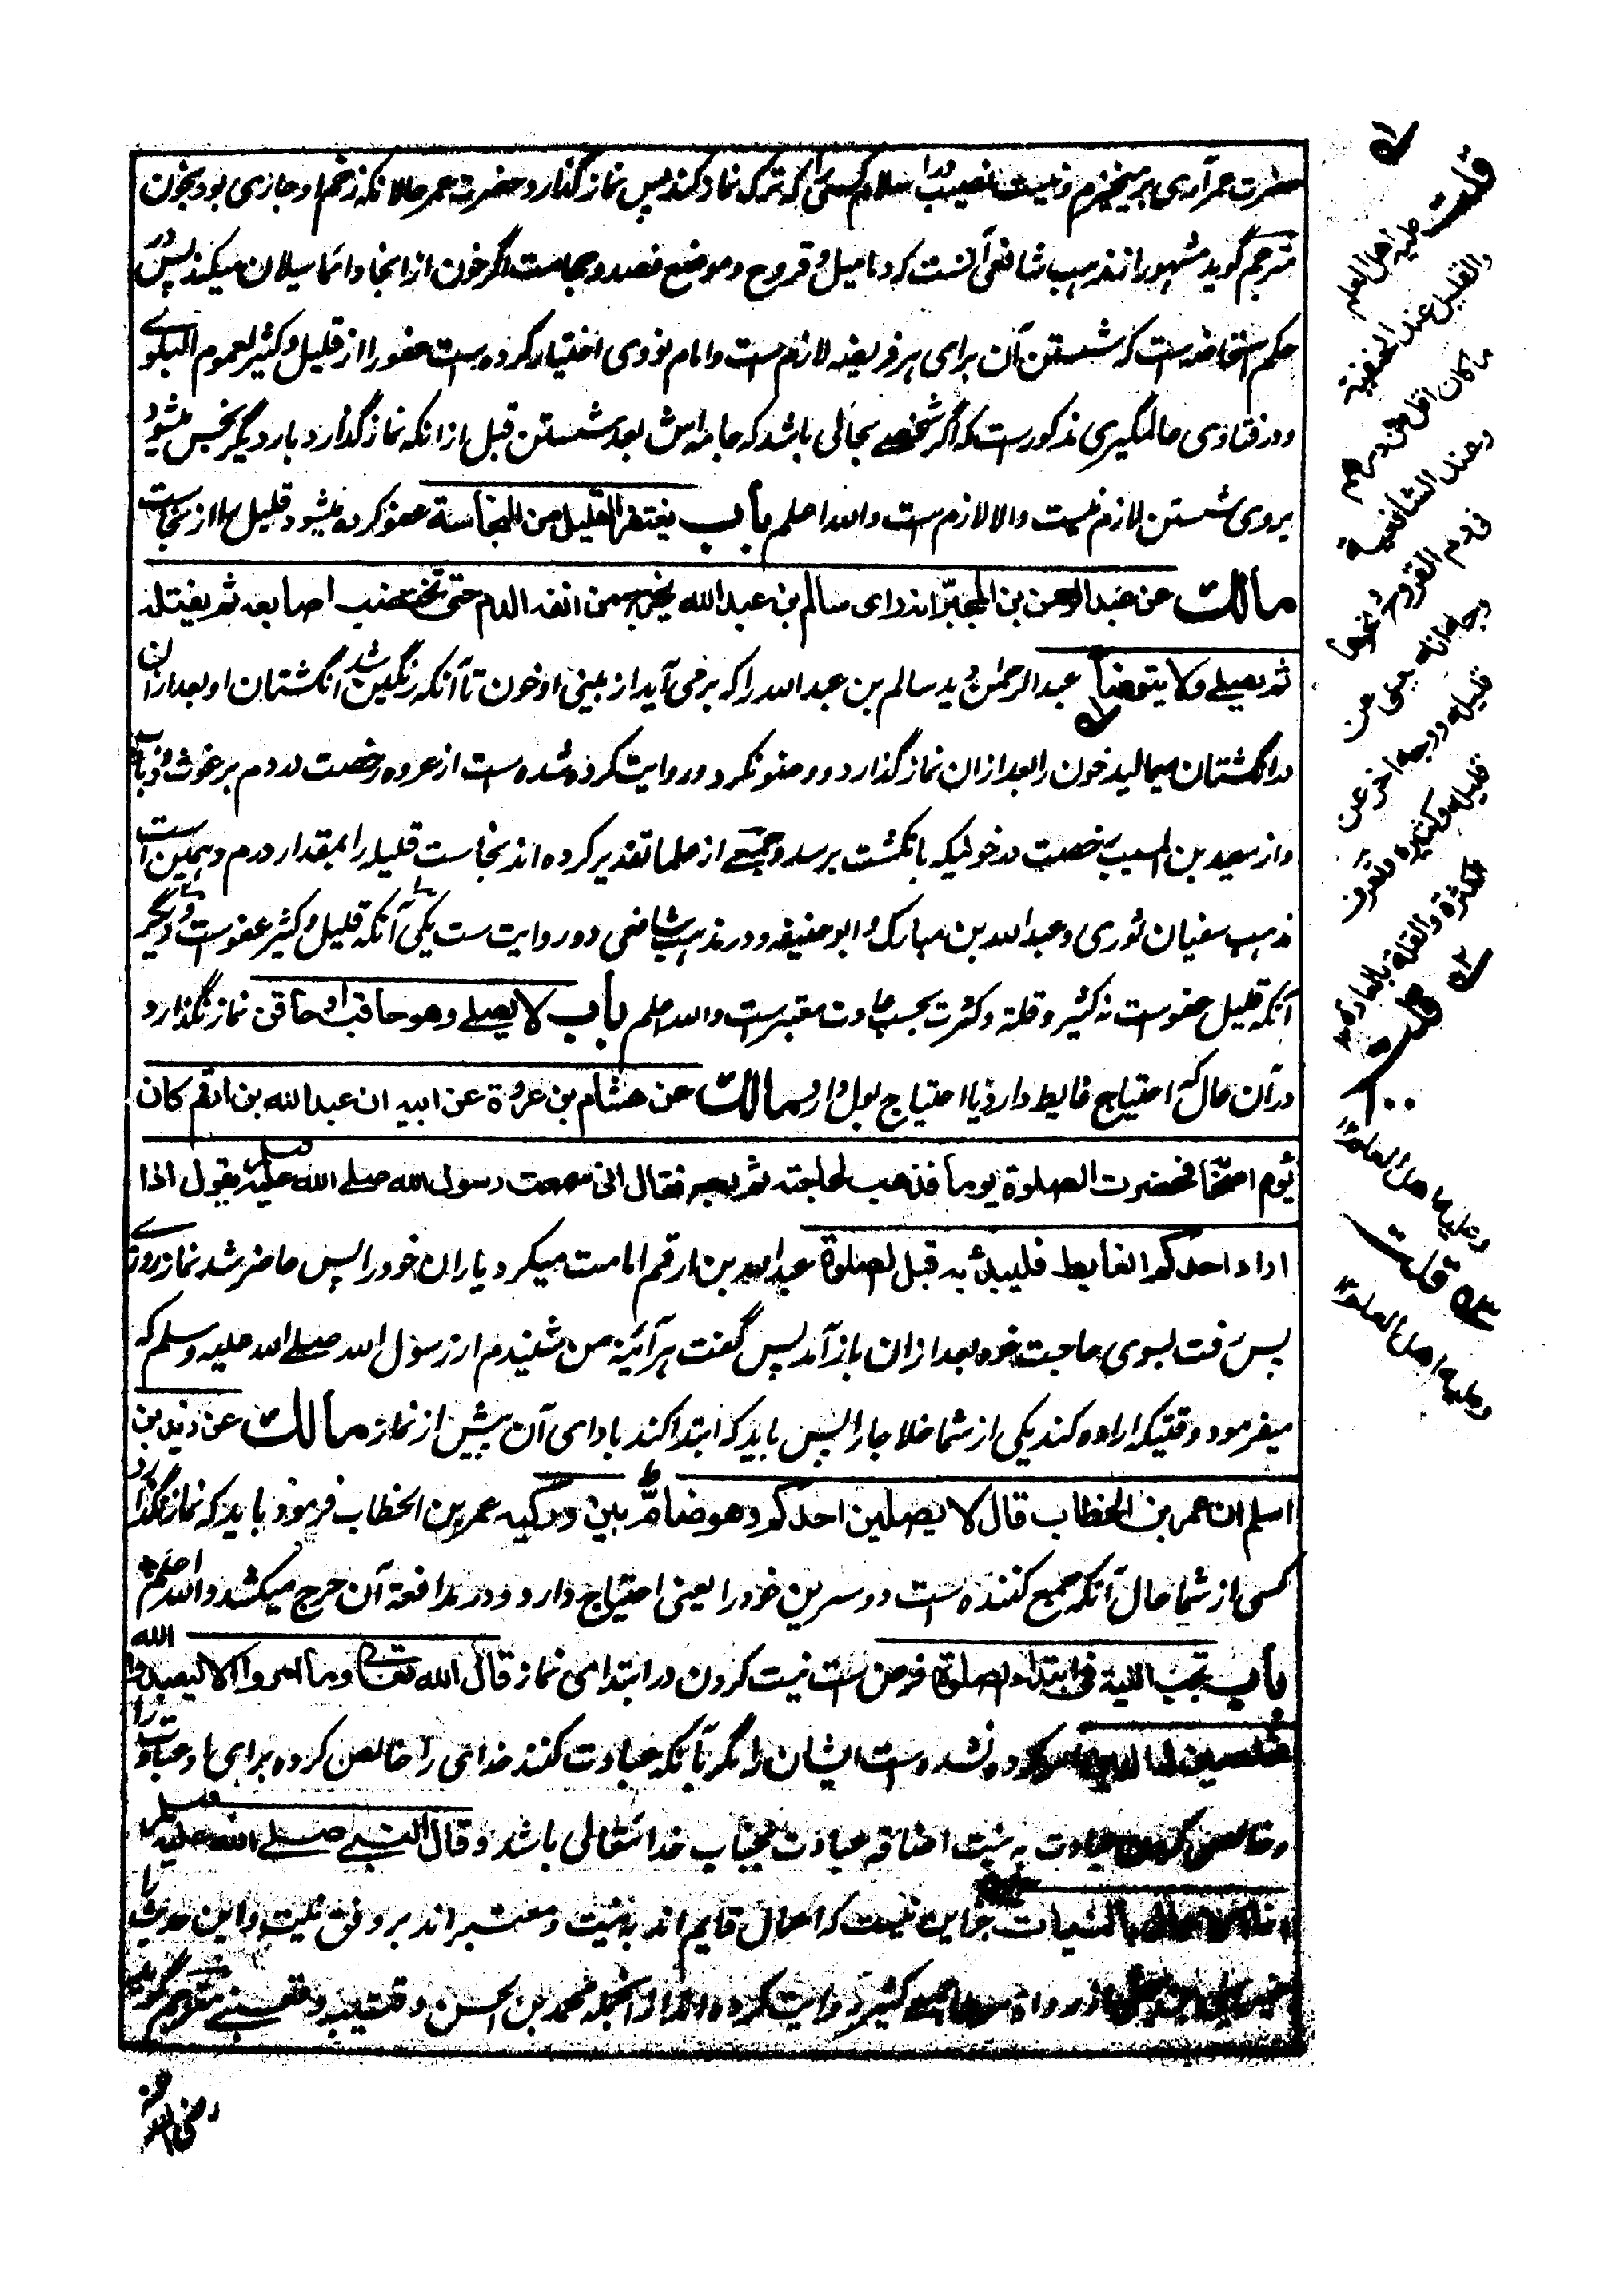 حضرت عمر آری برمیخیزم و نیست نصیب در اسلام کسی را که ترک نماز کند پس نماز گذارد حضرت عمر حالانکه زخم او جاری بود بخون
مترجم گوید مشهور از مذهب شافعی آنست که دمامیل و قروح و موضع فصد و حجامت اگر خون از انجا دائما سیلان میکند پس در
حکم استحاضه است که شستن آن برای هر فریضه لازم ست و امام نووی اختیار کرده ست عفو را از قلیل و کثیر لعموم البلوے
و در فتاوی عالمگیری مذکور ست که اگر شخصے بحالی باشد که جامه اش بعد شستن قبل از انکه نماز گذارد بار دیگر نجس میشود
بروی شستن لازم نیست والا لازم ست والله اعلم باب یغتفر القلیل من النجاسة عفو کرده میشود قلیل را از نجاست
مالك عن عبد الرحمن بن المجبّر انه رای سالم بن عبد الله یخرج من انفه الدم حتی تختضب اصابعه ثم یفتله
ثم یصلے ولا یتوضأ عبد الرحمن دید سالم بن عبد الله را که برمی آید از بینی او خون تا آنکه رنگین شد انگشتان او بعد ازان
در انگشتان میمالید خون را بعد ازان نماز گذارد و وضو نکرد و روایت کرده شده ست از عروه رخصت در دم برغوث و ذباب
و از سعید بن المسیب رخصت در خونیکه بانگشت برسد و جمعے از علما تقدیر کرده اند نجاست قلیله را بمقدار درم و همین است
مذهب سفیان ثوری و عبد الله بن مبارک و ابو حنیفه و در مذهب شافعی دو روایت ست یکی آنکه قلیل و کثیر عفوست و دیگر
آنکه قلیل عفوست نه کثیر و قلة و کثرت بحسب عادت معتبر ست والله اعلم باب لا یصلے وهو حاقب او حاقن نماز نگذارد
در آن حال که احتیاج غایط دارد یا احتیاج بول دارد مالك عن هشام بن عروة عن ابیه ان عبد الله بن ارقم کان
یؤم اصحابه فحضرت الصلوة یوما فذهب لحاجته ثم رجع فقال انی سمعت رسول الله صلے الله علیه وسلم یقول اذا
اراد احدکم الغایط فلیبدأ به قبل الصلوة عبد الله بن ارقم امامت میکرد یاران خود را پس حاضر شد نماز روزے
پس رفت بسوی حاجت خود بعد ازان باز آمد پس گفت هر آئینه من شنیدم از رسول الله صلے الله علیه وسلم که
میفرمود وقتیکه اراده کند یکی از شما خلا جا را پس باید که ابتدا کند بادای آن پیش از نماز مالك عن زید بن
اسلم ان عمر بن الخطاب قال لا یصلین احدکم وهو ضامّ بین ورکیه عمر بن الخطاب فرمود باید که نماز نگذارد
کسی از شما حال آنکه جمع کننده است دو سرین خود را یعنی احتیاج دارد و در مدافعة آن حرج میکشد والله اعلم
باب تجب النیة فی ابتداء الصلوة فرض ست نیت کردن در ابتدای نماز قال الله تعالی وما امروا الا لیعبدوا الله
مخلصین له الدین نشده ست ایشان را مگر بآنکه عبادت کنند خدای را خالص کرده برای او عبادت را
و خالص کردن عبادت به نیت اضافة عبادت بجناب خدا تعالی باشد وقال النبی صلے الله علیه وسلم
انما الاعمال بالنیات جز این نیست که اعمال قایم اند به نیت و معتبر اند بر وفق نیت و این حدیث را
از رواة کثیر روایت کرده اند از انجمله محمد بن الحسن و قتیبه و قعنبی مترجم گوید
رضی الله عنه
قلت
علیه اهل العلم
والقلیل عند الحنفیة
ما کان اقل من درهم
وعند الشافعیة
فی دم القروح ونحوها
وجهان یعفی عن
قلیله ووجه اخر عن
قلیله وکثیره وتعرف
الکثرة والقلة بالعادة
قلت
وعلیه اهل العلم
قلت
وعلیه اهل العلم